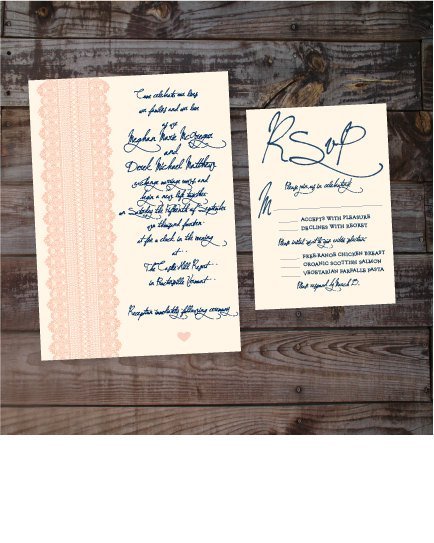 Come celebrate our love
our families and our love
of us
Meghan Marie McGregor
and
Derek Michael Matthews
exchange marriage vows and
begin a new life together
on Saturday the fifteenth of September
two thousand fourteen
at five o'clock in the evening
at...
The Capitol Hill Resort...
in Vermont...
Reception immediately following ceremony
RSVP
Please join us in celebrating!
M
ACCEPTS WITH PLEASURE
DECLINES WITH REGRET
Please initial next to your entrée selection:
FREE-RANGE CHICKEN BREAST
ORGANIC SCOTTISH SALMON
VEGETARIAN FARFALLE PASTA
Please respond by March 15.